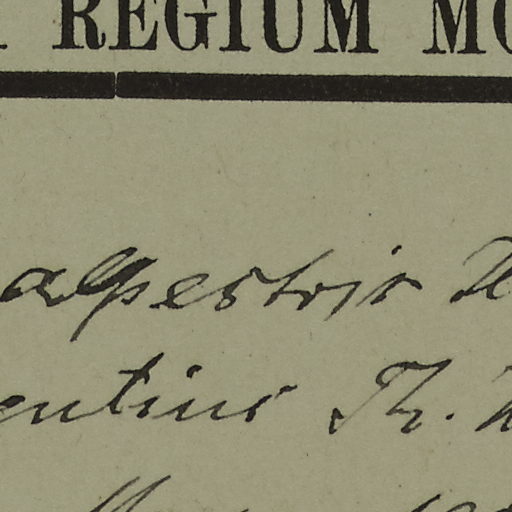 REGIUM MO
alpestris
entius Th.